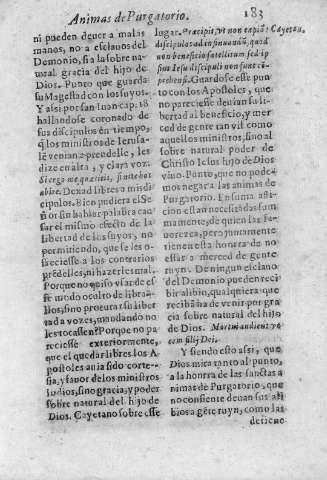 Animas de Purgatorio.
183
ni pueden deuer a malas
manos, no a esclauos del
Demonio, si a la sobre na-
tural gracia del hijo de
Dios. Punto que guarda
su Magestad con los suyos.
Y assi por san Iuan cap. 18
hallandose coronado de
sus discipulos en tiempo, q̃
los ministros de Ierusa-
lē venian a prendelle, les
dize en alta, y clara voz:
Si ergo me quæritis, sinite hos
abire. Dexad libres a mis di-
cipulos. Bien pudiera el Se-
ñor sin hablar palabra cau-
sar el mismo efecto de la
libertad de los suyos, no
permitiendo, que se les o-
freciesse a los contrarios
prēdelles, ni hazerles mal.
Porque no quiso vsar de es-
se modo oculto de libral-
los, sino procurar su liber-
tad a vozes, mandando no
les tocassen? Porque no pa-
reciesse exteriormente,
que el quedar libres los A-
postoles auia sido corte-
sia, y fauor de los ministros
Iudios, sino gracia, y poder
sobre natural del hijo de
Dios. Cayetano sobre esse
lugar. Præcipit, vt non capiāt Cayetan.
discipulos ad insinuandū, quod
non beneficio satellitum sed ip
sius Iesu discipuli non sunt cō-
prehensi. Guardose esse pun-
to con los Apostoles, que
no pareciesse deuian su li-
bertad al beneficio, y mer-
ced de gente tan vil como
aquellos ministros, sino al
sobre natural poder de
Christo Iesus hijo de Dios
viuo. Punto, que no pode-
mos negar a las animas de
Purgatorio. En suma afli-
cion estan necesitadas su-
mamente, de quien las fa-
uorezca, pero juntamente
tienen esta honrra de no
estar a merced de gente
ruyn. De ningun esclauo
del Demonio pueden reci-
bir alibio, qualquiera que
recibã ha de venir por gra-
cia sobre natural del hijo
de Dios. Mortui audient vo
cem filij Dei.
Y siendo esto assi, que
Dios mira tanto al punto,
a la honrra de las sanctas a
nimas de Purgatorio, que
no consiente deuan sus ali
bios a gēte ruyn, como las
detiene